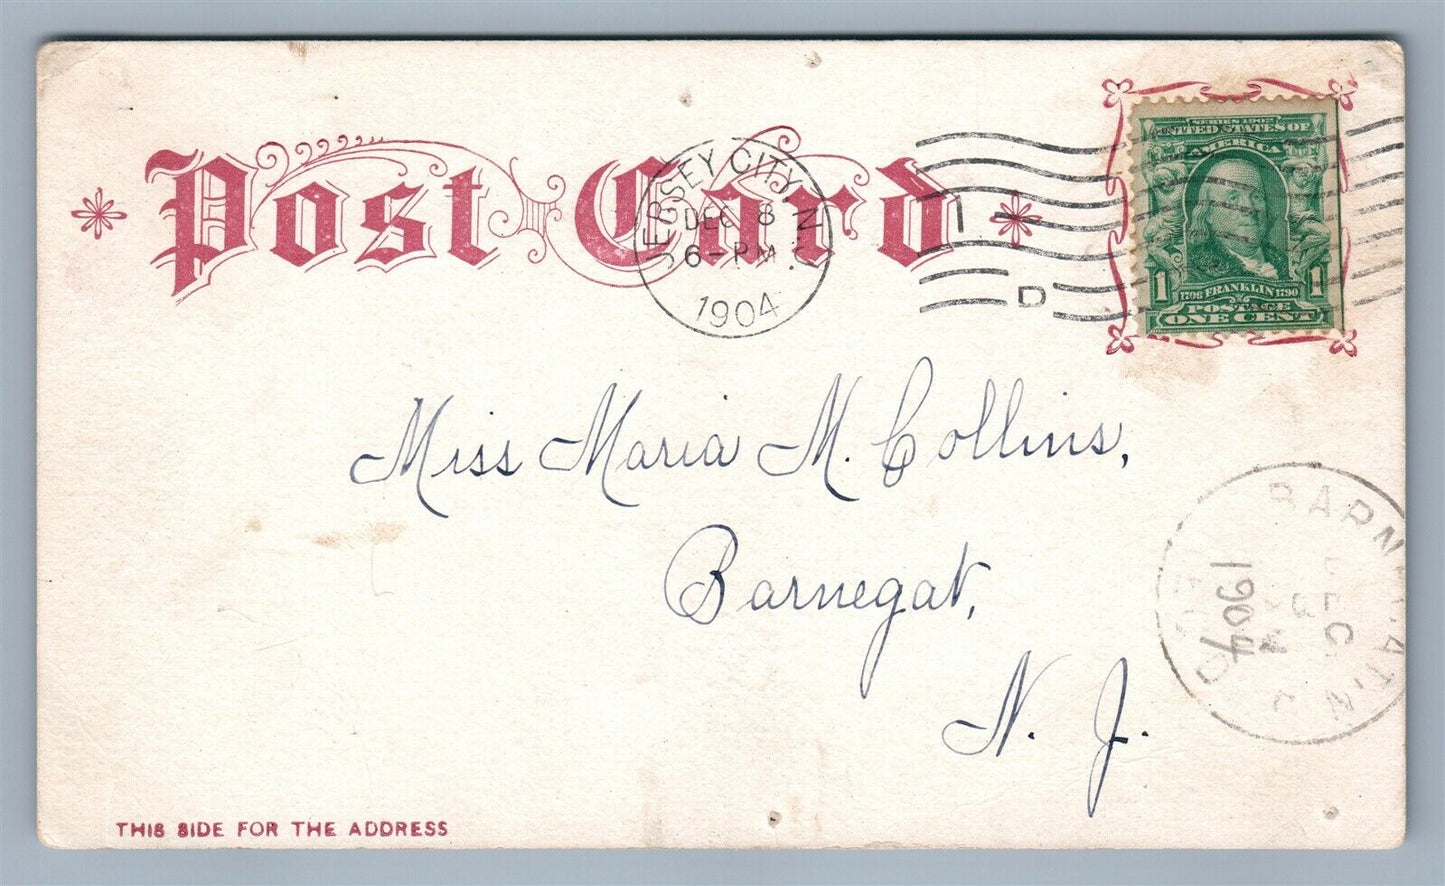 Post Card
JERSEY CITY N.J.
DEC 8
6-PM
1904
1
D
SERIES 1902
UNITED STATES OF
AMERICA
1 1706 FRANKLIN 1790 1
POSTAGE
ONE CENT
Miss Maria M. Collins,
Barnegat,
N. J.
BARNEGAT. N.J.
DEC
1904
REC'D
THIS SIDE FOR THE ADDRESS